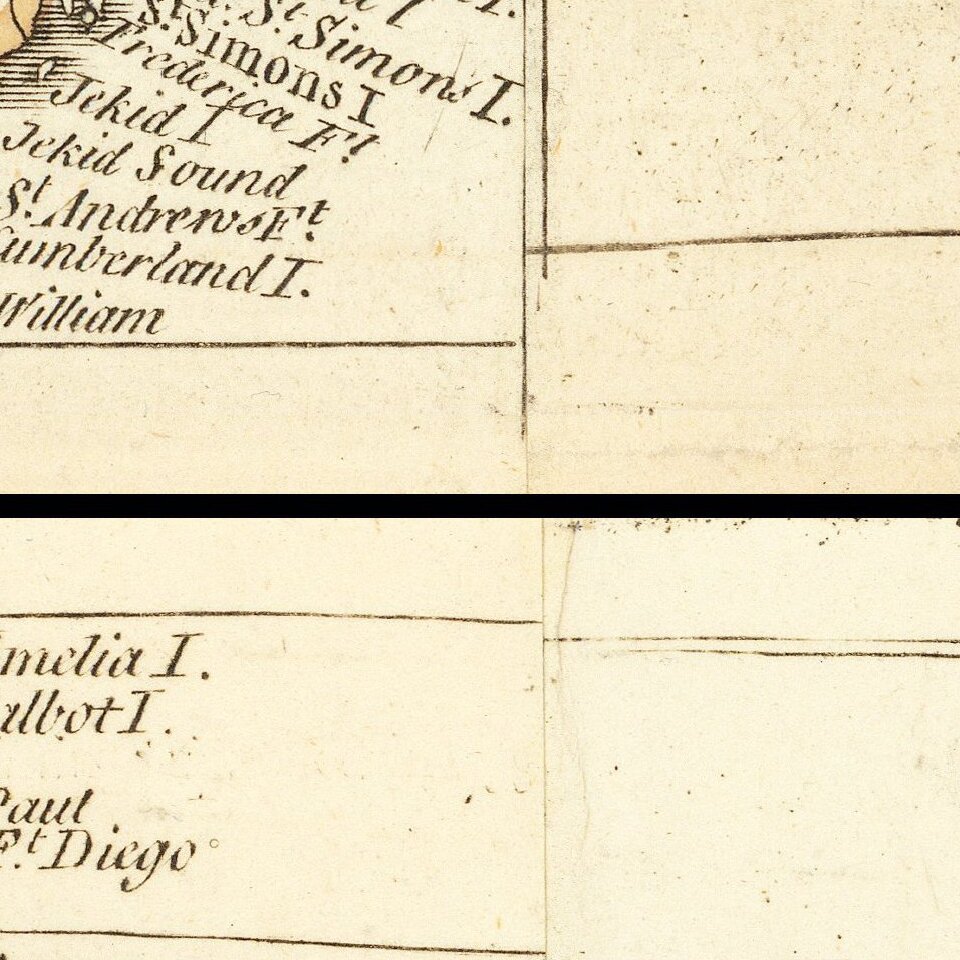 St. Simons I.
S. Simons I
Frederica Ft
Jekid I
Jekid Sound
St. Andrews Ft.
Cumberland I.
William
melia I.
albot I.
Paul
Ft. Diego